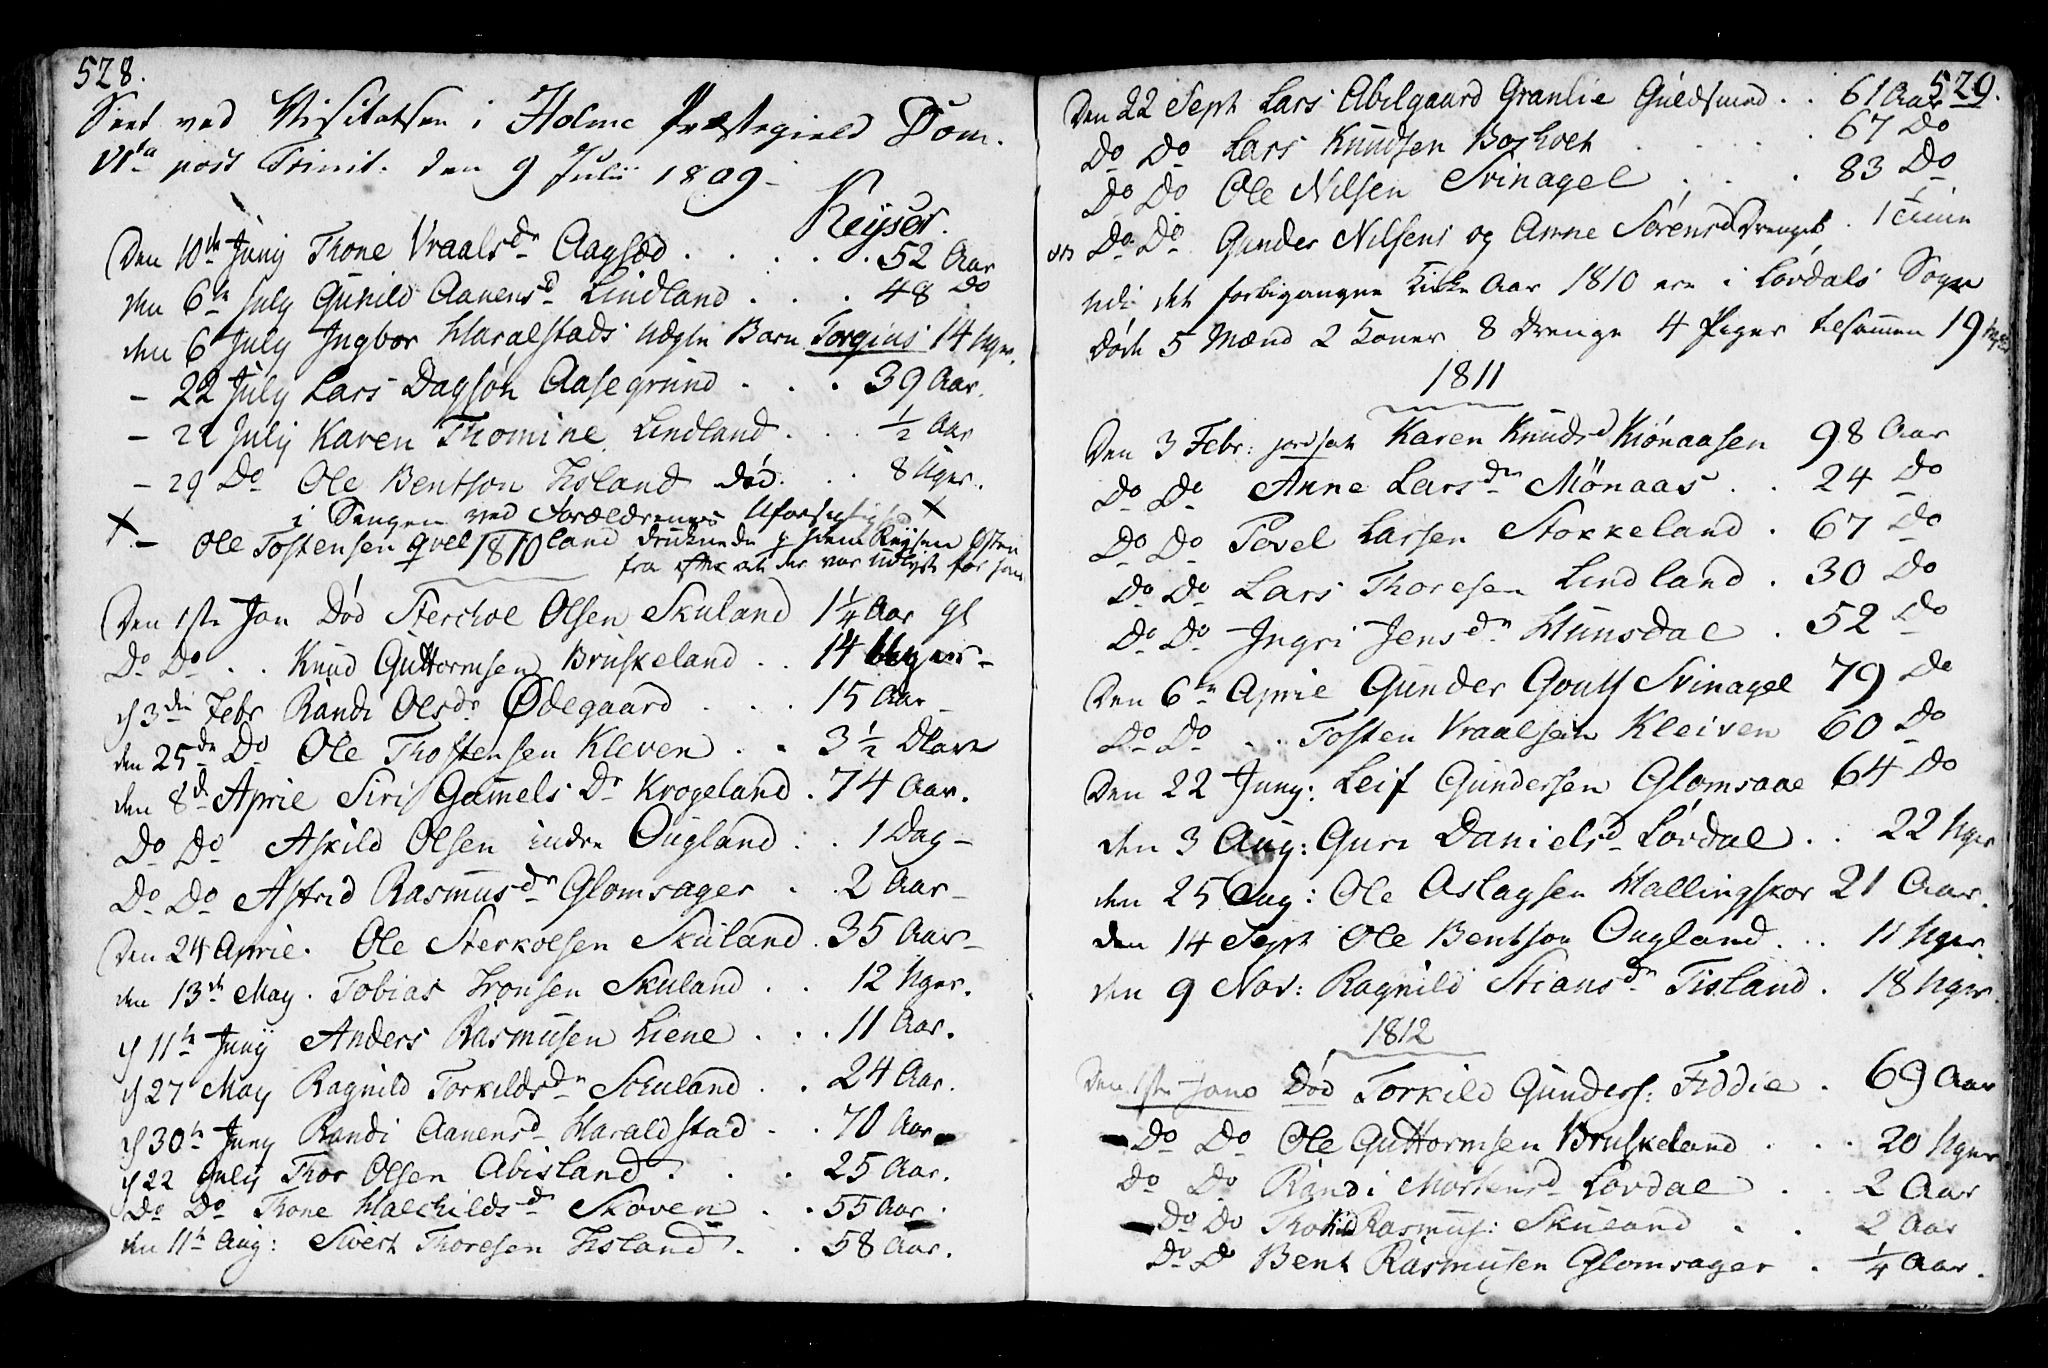 528.
Seet ved Visitatsen i Holme Præstegield Dom.
VIta post Trinit. den 9 Julii 1809 -
Keyser.
Den 10de Junij Thone Vraalsdr Aagsæd . . . . . 52 Aar
den 6te July Gunild Aanensd Lindland . . . 48 Do
den 6 July Ingbor Haralstads uægte Barn Torgius 14 Uger.
- 22 July Lars Dagson Aasegrund . . . 39 Aar.
- 22 July Karen Thomine Lindland . . . ½ Aar
- 29 Do Ole Bentson Tisland død . . 8 Uger.
i Sengen ved Forældrenes Uforsigtighed x
x - Ole Tostensen land druknede Reysen
fra efter at der var Udlyst for ham
1810
Den 1ste Jan Død Sterchol Olsen Skuland 1¼ Aar gl
Do Do . . Knud Guttormsen Bruskeland . . 14 Uger -
d 3die Febr Randi Olsdr Ødegaard . . . 15 Aar -
den 25de Do Ole Thostensen Kleven . . 3½
den 8de April Siri Gamels Dr Krogeland . 74 Aar.
Do Do Askild Olsen indre Ougland . . 1 Dag -
Do Do Astrid Rasmusdr Glomsager . . 2 Aar -
Den 24 April. Ole Sterkolsen Skuland . 35 Aar -
den 13de May. Tobias Tronsen Skuland . . 12 Uger.
d 11te Junij Anders Rasmusen Liene . . . 11 Aar.
d 27 May Ragnild Torkildsdr Skuland . . 24 Aar.
d 30te Juny Randi Aanensd Haraldstad . . 70 Aar.
d 22 July Thor Olsen Abisland . . . 25 Aar.
Do Do Thone Halchildsdr Skoven . . 55 Aar.
den 11te Aug: Sivert Thoresen Tisland . . 58 Aar.
529.
Den 22 Sept Lars Abelgaard Granlie Guldsmed . . 61 Aar
Do Do Lars Knudsen Bosholt . . . . 67 Do
Do Do Ole Nilsen Svinagel . . . 83 Do
Do Do Gunder Nilsens og Anne Sørensd Drengeb. . 1 Time
Udi det forbigangne Kirke Aar 1810 ere i Løvdals Sogn
døde 5 Mænd 2 Koner 8 Drenge 4 Piger tilsammen 19
1811
Den 3 Febr: jordsat Karen Knudsd Kiønaasen 98 Aar
Do Do Anne Larsdr Mønaas . . 24 Do
Do Do Povel Larsen Stokkeland . 67 Do
Do Do Lars Thoresen Lindland . 30 Do
Do Do Ingri Jensdr Hunsdal . 52 Do
Den 6te April Gunder Svinagel 79 Do
Do Do . . Tosten Vraalsen Kleiven 60 Do
Den 22 Juny: Leif Gundersen Glomsaae 64 Do
den 3 Aug: Guri Danielsd Løvdal . . 22 Uger
den 25 Aug: Ole Aslagsen Hallingskor 21 Aar.
den 14 Sept Ole Bentson Ougland . . . 11 Uger.
den 9 Nov: Ragnild Stiansdr Tisland . 18 Uger.
1812
Den 1ste Jano Død Torkild Gunders: Fiddie . 69 Aar
- Do Do Ole Guttormsen Bruskeland . . . 20 Uger
Do Do Randi Mortensd Løvdal . . 2 Aar
- Do Do Rasmus: Skuland . . 2 Aar
Do Do Bent Rasmusen Glomsager . ¼ Aar.